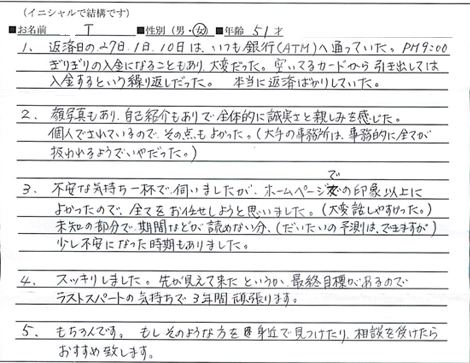 (イニシャルで結構です)
■お名前 T ■性別(男・女)■年齢 51才
1、返済日の27日、1日、10日は、いつも銀行(ATM)へ通っていた。PM9:00
ぎりぎりの入金になることもあり、大変だった。空いてるカードから引き出しては
入金するという繰り返しだった。 本当に返済ばかりしていた。
2、顔写真もあり、自己紹介もありで全体的に誠実さと親しみを感じた。
個人でされているので、その点もよかった。(大手の事務所は、事務的に全てが
扱われるようでいやだった。)
3、不安な気持ち一杯で伺いましたが、ホームページでの印象以上に
よかったので、全てをお任せしようと思いました。(大変話しやすかった。)
未知の部分で、期間などが読めない分、(だいたいの予測は、できますが)
少し不安になった時期もありました。
4、スッキリしました。先が見えて来たというか、最終目標があるので
ラストスパートの気持ちで3年間頑張ります。
5、もちろんです。もしそのような方を身近で見つけたり、相談を受けたら
おすすめ致します。